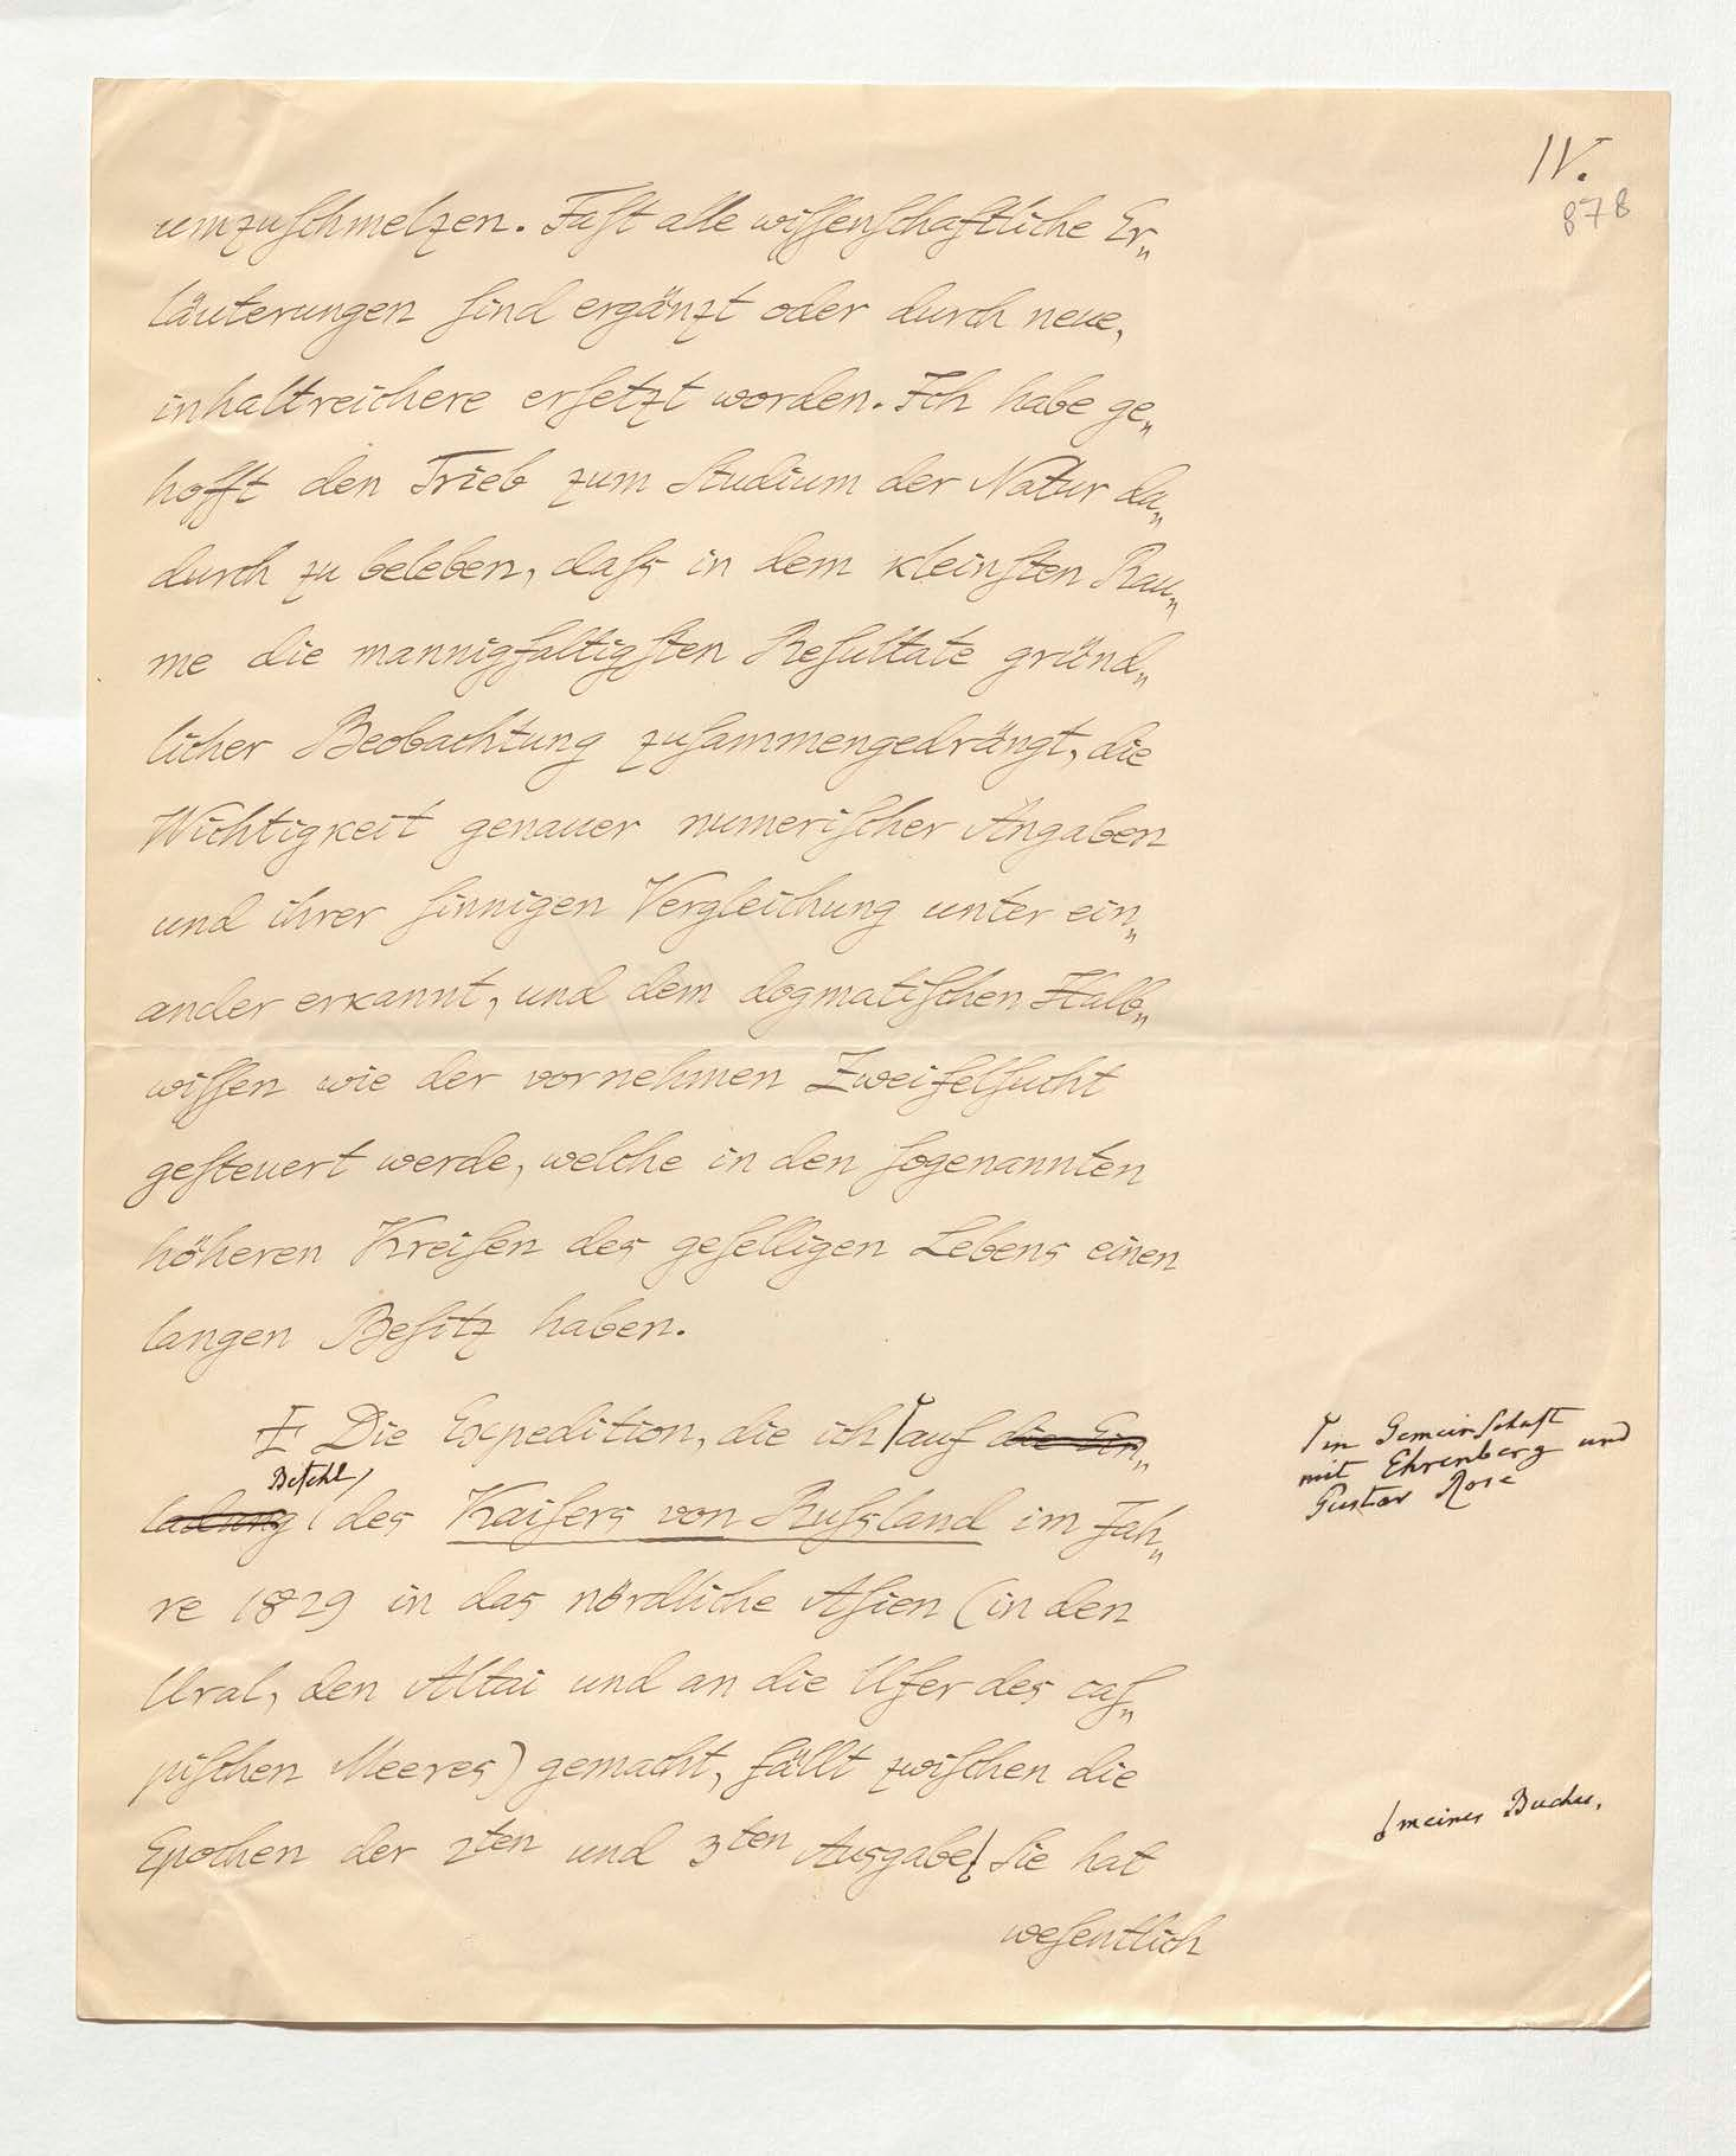 IV.
878
umzuſchmelzen. Faſt alle wiſſenſchaftliche Er„
läuterungen ſind ergänzt oder durch neue,
inhaltreichere erſetzt worden. Ich habe ge„
hofft den Trieb zum Studium der Natur da„
durch zu beleben, daſs in dem kleinſten Rau„
me die mannigfaltigſten Reſultate gründ„
licher Beobachtung zuſammengedrängt, die
Wichtigkeit genauer numeriſcher Angaben
und ihrer ſinnigen Vergleichung unter ein„
ander erkannt, und dem dogmatiſchen Halb„
wiſſen wie der vornehmen Zweifelſucht
geſteuert werde, welche in den ſogenannten
höheren Kreiſen des geſelligen Lebens einen
langen Beſitz haben.
Die Expedition, die ich auf die Ein„
Befehl
ladung des Kaiſers von Ruſsland im Jah„
re 1829 in das nördliche Aſien (in den
Ural, den Altai und an die Ufer des caſ„
piſchen Meeres) gemacht, fällt zwiſchen die
Epochen der 2ten und 3ten Ausgabe. Sie hat
weſentlich
in Gemeinſchaft
mit Ehrenberg und
Gustav Rose
meines Buches.